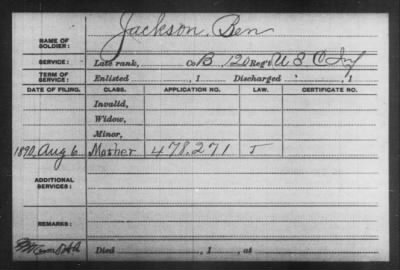 NAME OF SOLDIER: Jackson, Ben
SERVICE: Late rank, Co. B, 120 Reg't U S C Inf
TERM OF SERVICE: Enlisted , 1 Discharged , 1
DATE OF FILING. CLASS. APPLICATION NO. LAW. CERTIFICATE NO.
Invalid,
Widow,
Minor,
1890, Aug 6 Mother 478.271 J
ADDITIONAL SERVICES:
REMARKS:
Died , 1 , at